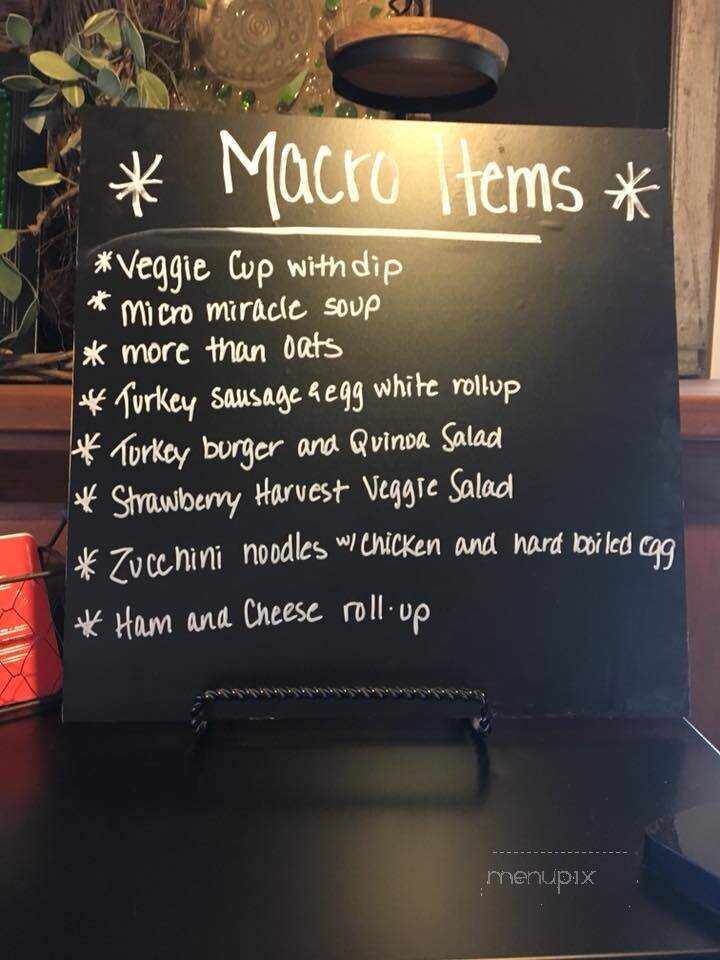 * Macro Items *
* Veggie Cup with dip
* Micro miracle soup
* more than oats
* Turkey sausage & egg white rollup
* Turkey burger and Quinoa Salad
* Strawberry Harvest Veggie Salad
* Zucchini noodles w/ chicken and hard boiled egg
* Ham and Cheese roll-up
menupix